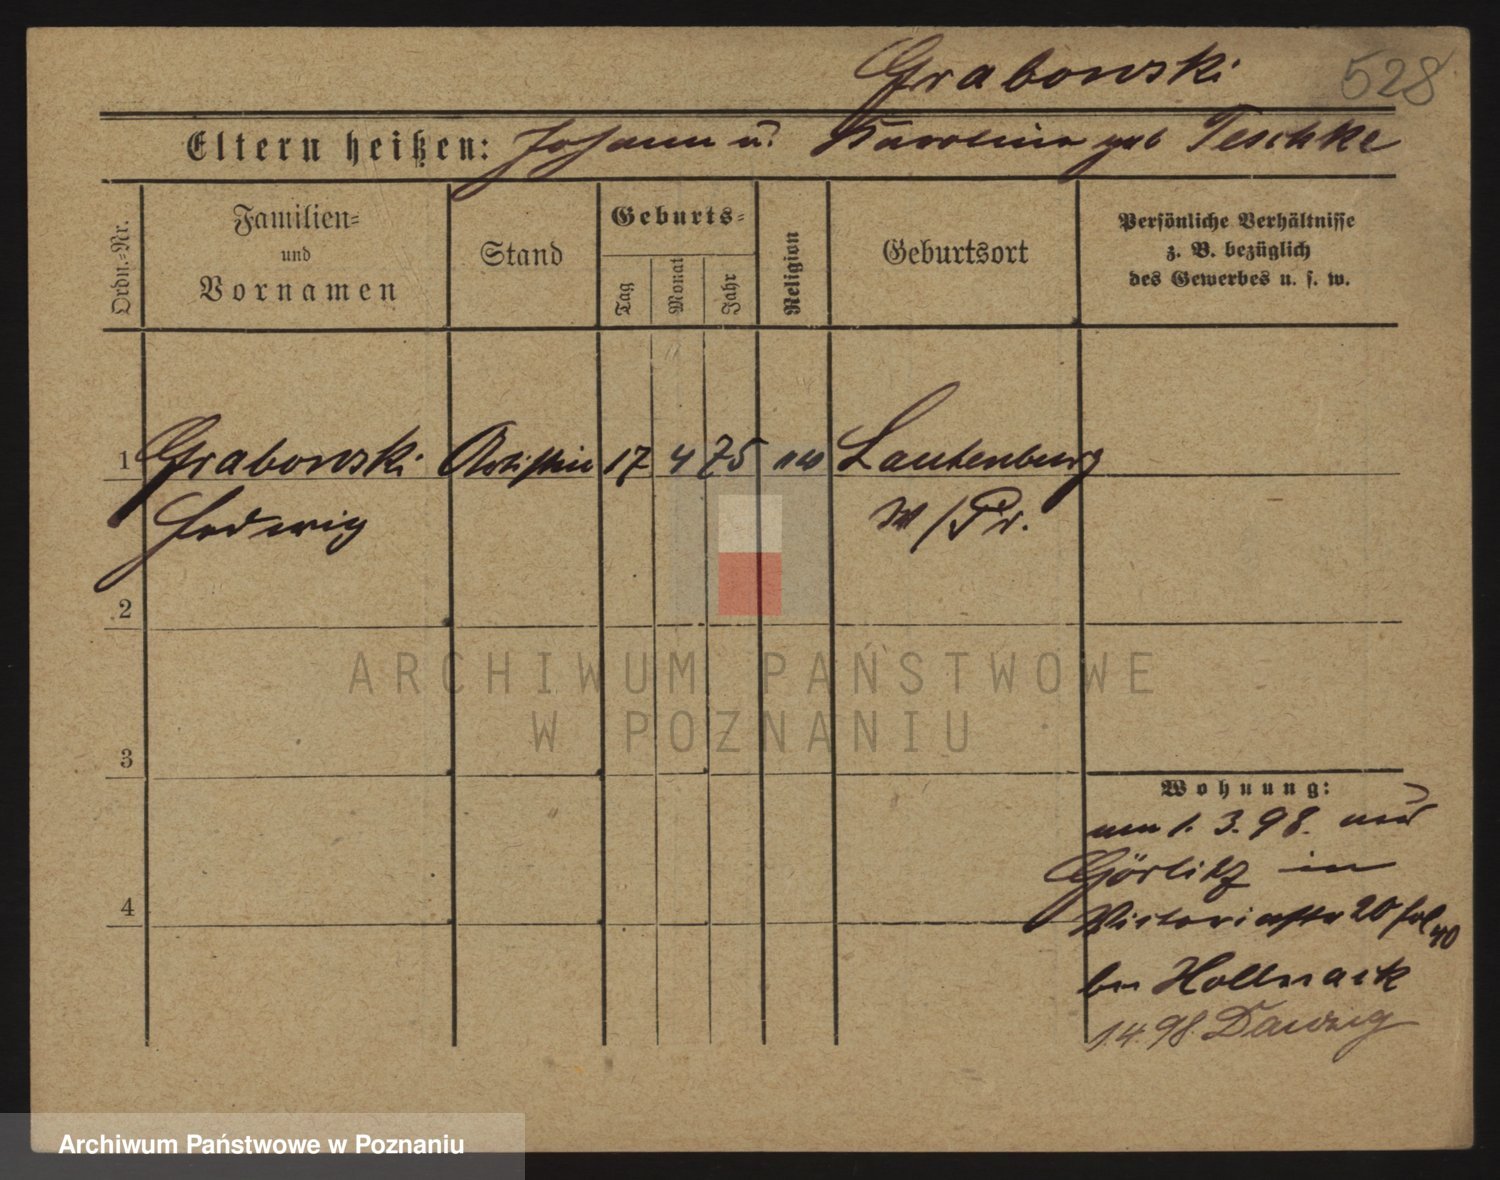 Grabowski 528
Eltern heißen: Johann u. Karoline geb Teschke
Ordn.-Nr.
Familien-
und
Vornamen
Stand
Geburts-
Tag
Monat
Jahr
Religion
Geburtsort
Persönliche Verhältnisse
z. B. bezüglich
des Gewerbes u. s. w.
1 Grabowski Artistin 17 4 75 Lautenburg
Hedwig W/Pr.
2
ARCHIWUM PAŃSTWOWE
W POZNANIU
3
Wohnung:
1. 3. 98.
Görlitz in
Victoriastr 20
bei Hollnack
1.4.98. Danzig
4
Archiwum Państwowe w Poznaniu